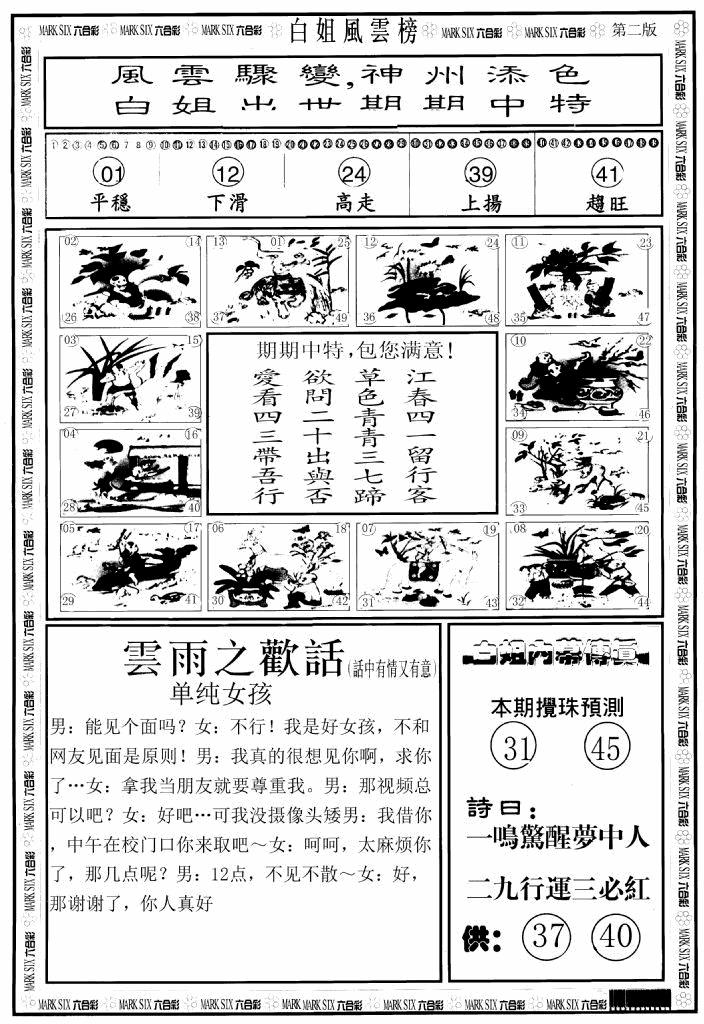 MARK SIX 六合彩 MARK SIX 六合彩 白姐風雲榜 MARK SIX 六合彩 MARK SIX 六合彩 第二版
風雲驟變,神州添色
白姐出世期期中特
01 12 24 39 41
平穩 下滑 高走 上揚 趨旺
02 14 26 38
13 01 25 37 49
12 24 36 48
11 23 35 47
03 15 27 39
10 22 34 46
04 16 28 40
09 21 33 45
05 17 29 41
06 18 30 42
07 19 31 43
08 20 32 44
期期中特,包您满意!
江春四一留行客
草色青青三七蹄
欲問二十出與否
愛看四三帶吾行
雲雨之歡話(話中有情又有意)
单纯女孩
男：能见个面吗？女：不行！我是好女孩，不和
网友见面是原则！男：我真的很想见你啊，求你
了…女：拿我当朋友就要尊重我。男：那视频总
可以吧？女：好吧…可我没摄像头矮男：我借你
，中午在校门口你来取吧～女：呵呵，太麻烦你
了，那几点呢？男：12点，不见不散～女：好，
那谢谢了，你人真好
白姐内幕傳真
本期攪珠預測
31 45
詩曰：
一鳴驚醒夢中人
二九行運三必紅
供： 37 40
MARK SIX 六合彩 MARK SIX 六合彩 MARK SIX 六合彩 MARK SIX 六合彩 MARK SIX 六合彩 MARK SIX 六合彩 MARK SIX 六合彩